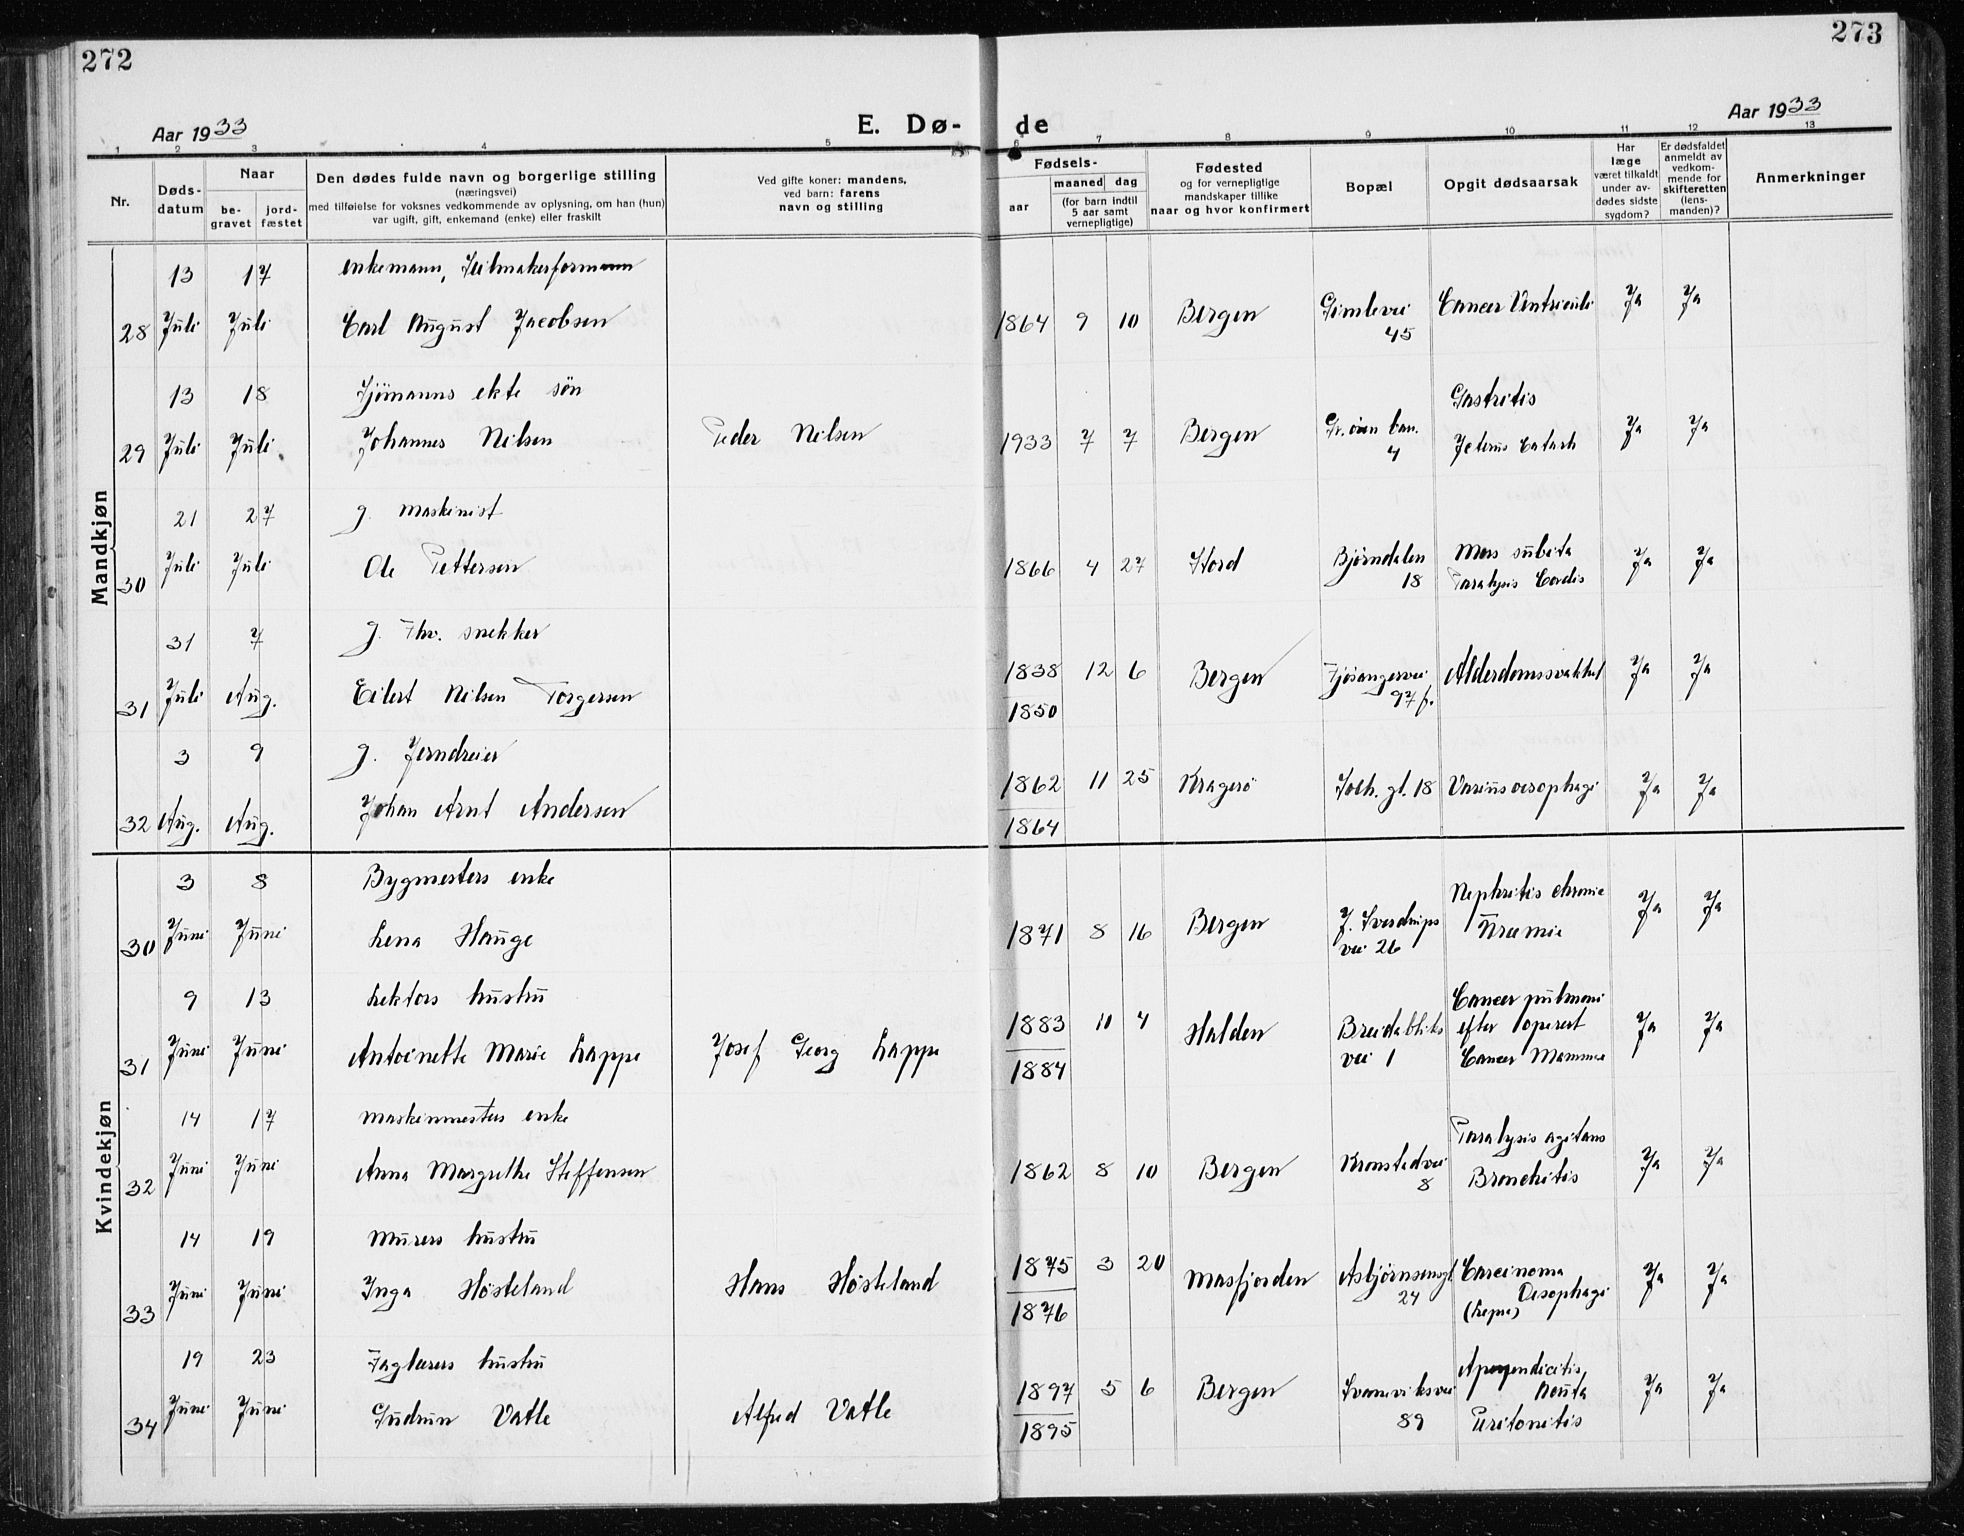 272
273
Aar 1933
E. Dø-
de
Aar 1933
1 2 3 4 5 6 7 8 9 10 11 12 13
Nr.
Døds-
datum
Naar
be-
gravet
jord-
fæstet
Den dødes fulde navn og borgerlige stilling
(næringsvei)
med tilføielse for voksnes vedkommende av oplysning, om han (hun)
var ugift, gift, enkemand (enke) eller fraskilt
Ved gifte koner: mandens,
ved barn: farens
navn og stilling
Fødsels-
aar
maaned
dag
(for barn indtil
5 aar samt
vernepligtige)
Fødested
og for vernepligtige
mandskaper tillike
naar og hvor konfirmert
Bopæl
Opgit dødsaarsak
Har
læge
været tilkaldt
under av-
dødes sidste
sygdom?
Er dødsfaldet
anmeldt av
vedkom-
mende for
skifteretten
(lens-
manden)?
Anmerkninger
Mandkjøn
13 17 enkemann, Seilmakerformann
28 Juli Juli Carl August Jacobsen 1864 9 10 Bergen Gimlevei Cancer Ventriculi Ja Ja
45
13 18 Sjömanns ekte sön Gastritis
29 Juli Juli Johannes Nilsen Peder Nilsen 1933 7 7 Bergen 4 Icterus Catarh Ja Ja
21 27 g. maskinist
30 Juli Juli Ole Pettersen 1866 4 27 Stord Bjørndalen Mors subita Ja Ja
18 Paralysis Cordis
31 7 g. Fhv. snekker
31 Juli Aug. Eilert Nilsen Torgersen 1838 12 6 Bergen Fjøsangervei Alderdomssvakhet Ja Ja
1850 97 f.
3 9 g. Jerndreier
32 Aug. Aug. Johan Arnt Andersen 1862 11 25 Kragerö Solh. gt. 18 oesophagi Ja Ja
1864
Kvindekjøn
3 8 Bygmesters enke Nephritis chronic
30 Juni Juni Lena Hauge 1871 8 16 Bergen J. Sverdrups Uræmie Ja Ja
vei 26
9 13 Lektors hustru Cancer pulmoni
31 Juni Juni Antoinette Marie Lappe Josef Georg Lappe 1883 10 4 Halden Breidabliks efter operert Ja Ja
1884 vei 1 Cancer Mammae
14 17 maskinmesters enke Paralysis agitans
32 Juni Juni Anna Margrethe Steffensen 1862 8 10 Bergen Kronstadvei Ja Ja
8 Bronchitis
14 19 Murers hustru
33 Juni Juni Inga Høsteland Hans Høsteland 1875 3 20 Masfjorden Asbjørnsensgt Carcinoma Ja Ja
1876 24 Oesophagi
19 23 Faglærers hustru Appendicitis
34 Juni Juni Gudrun Vatle Alfred Vatle 1897 5 6 Bergen Svaneviksvei Acuta Ja Ja
1895 89 Peritonitis